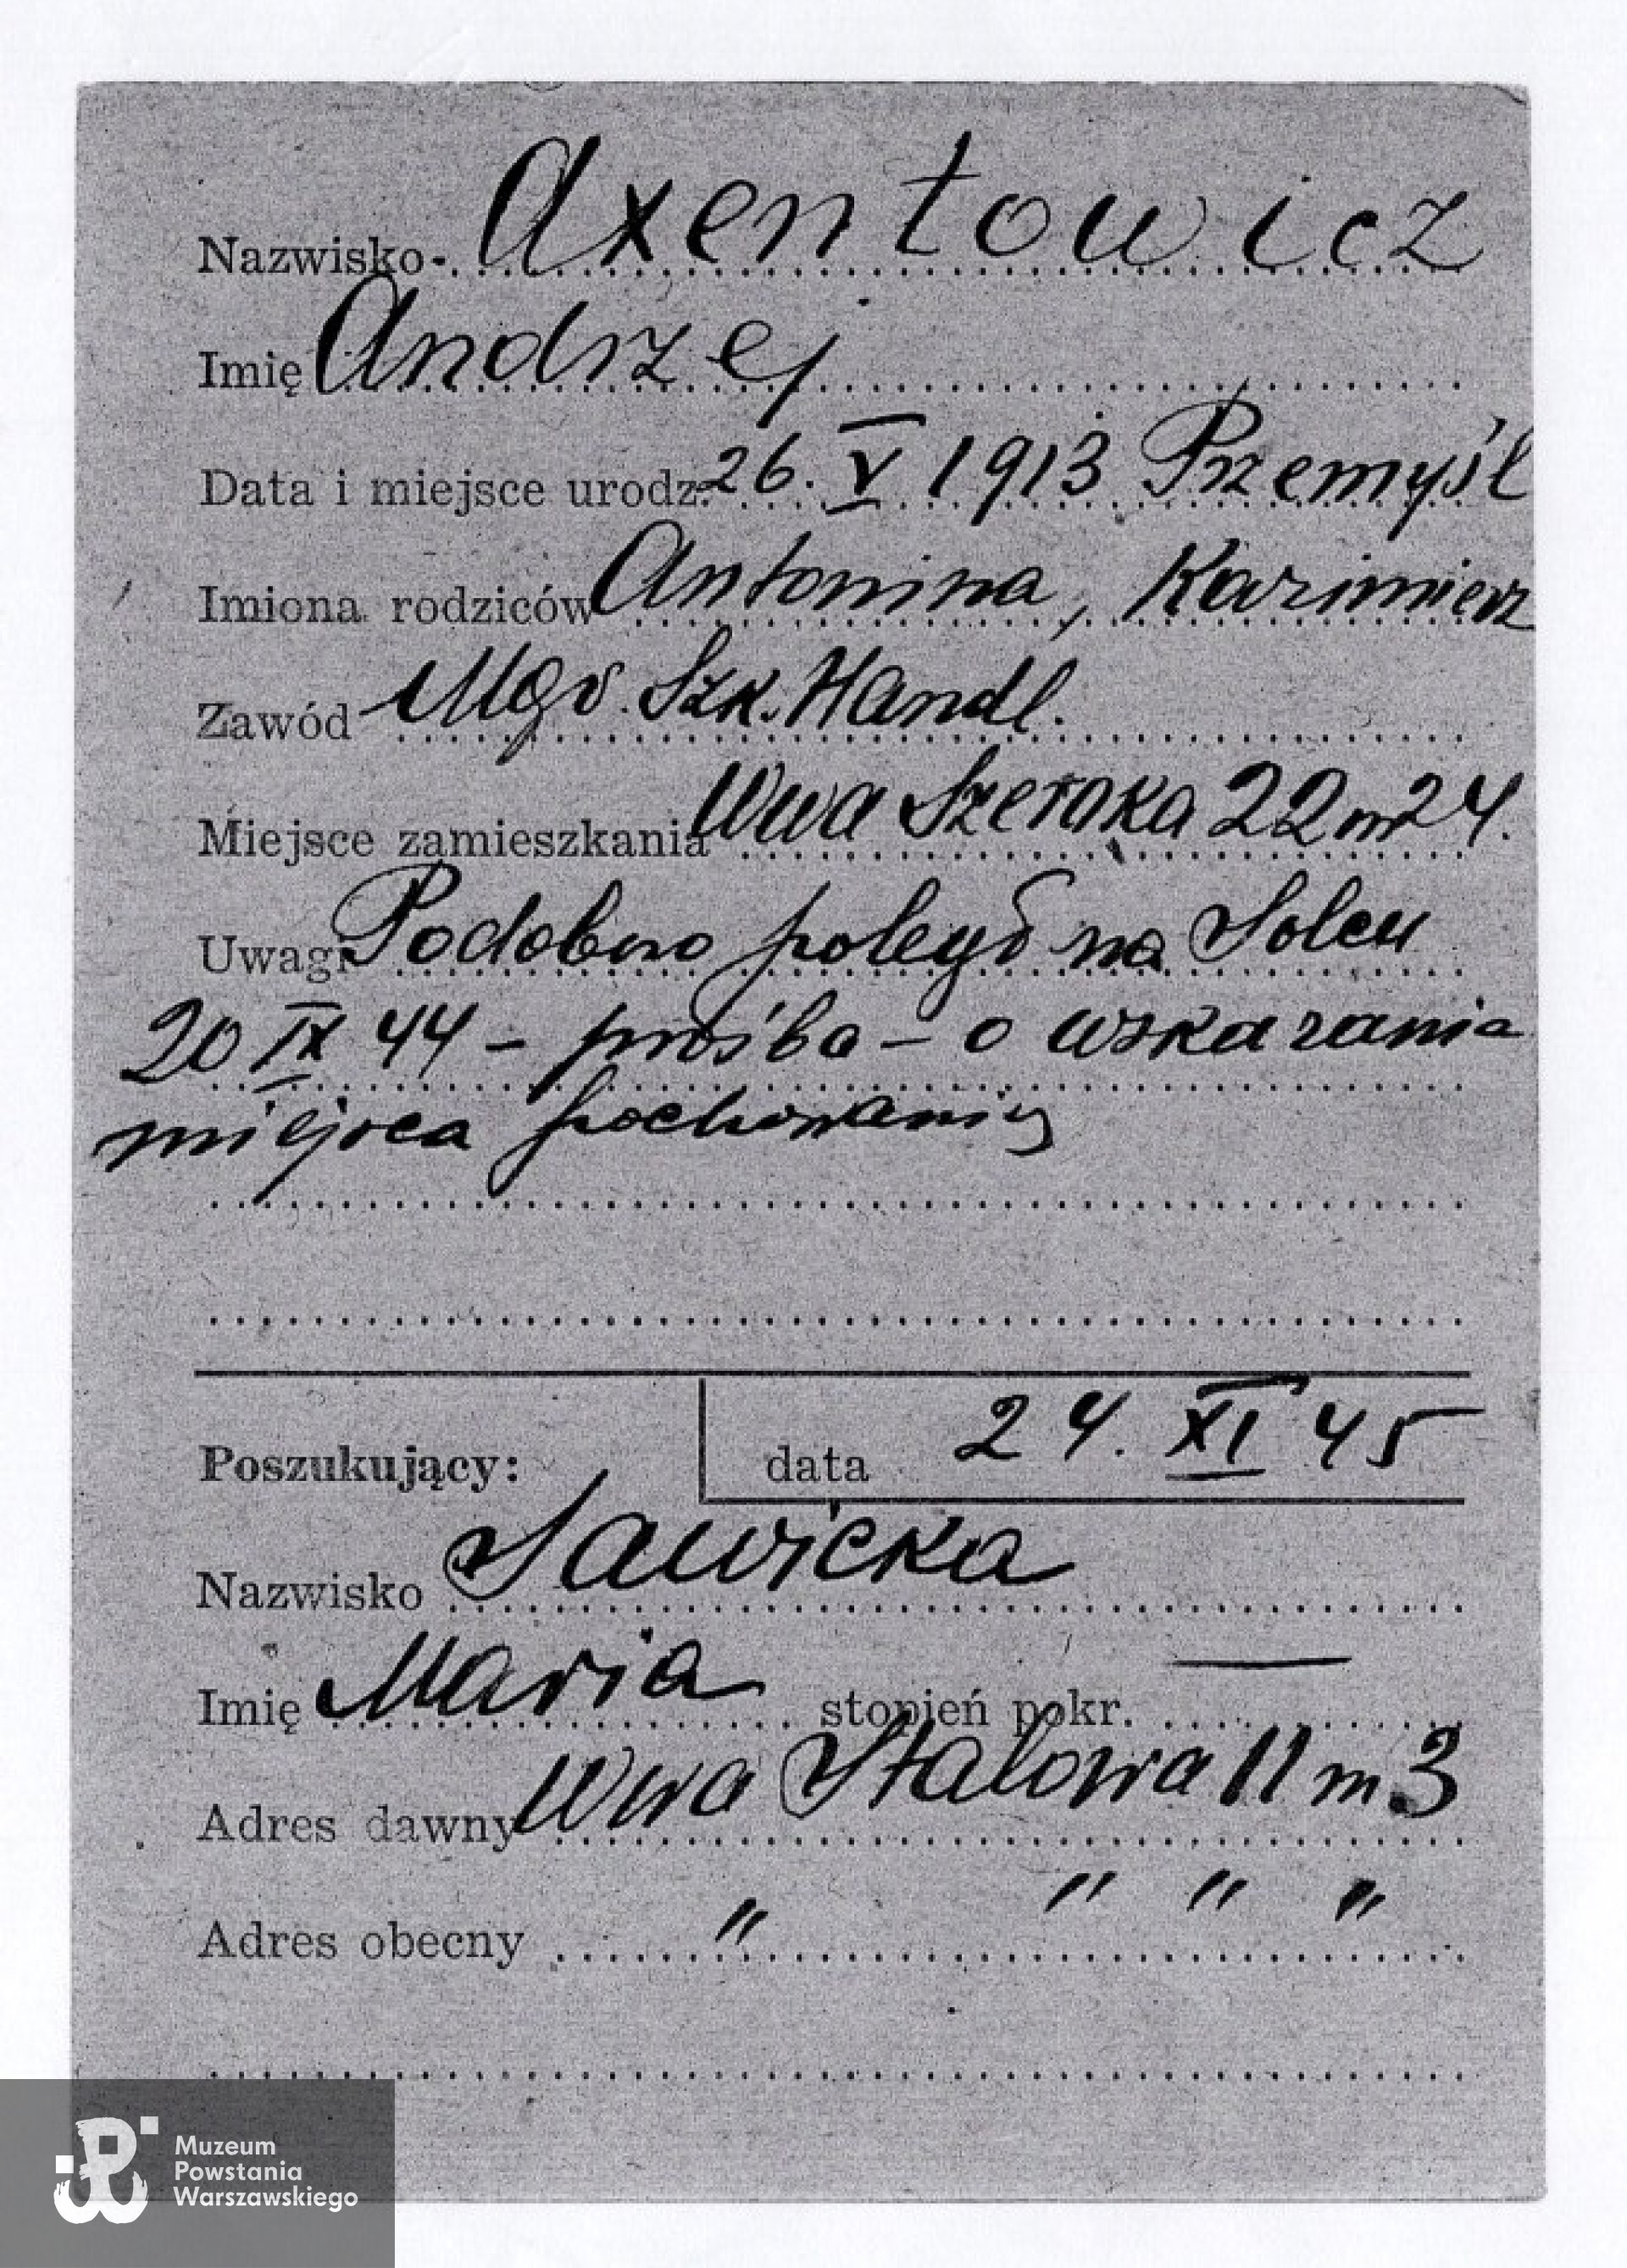 Nazwisko - Axentowicz
Imię Andrzej
Data i miejsce urodz. 26. V 1913 Przemyśl
Imiona rodziców Antonina, Kazimierz
Zawód Mgr. Szk. Handl.
Miejsce zamieszkania Wwa Szeroka 22 m 24.
Uwagi Podobno poległ na Solcu
20 IX 44 - prośba - o wskazania
miejsca pochowania
Poszukujący: data 24. XI 45
Nazwisko Sawicka
Imię Maria stopień pokr. —
Adres dawny Wwa Stalowa 11 m 3
Adres obecny " " " "
Muzeum
Powstania
Warszawskiego